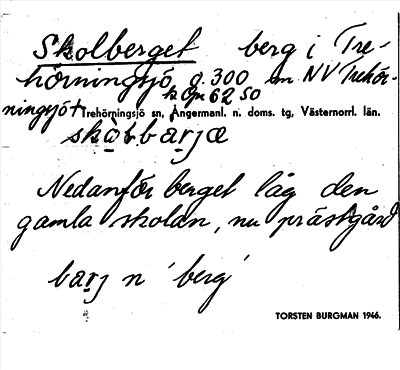 Skolberget berg i Tre-
hörningsjö, c:a 300 m NV Trehör-
k Öpn 62 50
ningsjö t
Trehörningsjö sn, Ångermanl. n. doms. tg, Västernorrl. län.
Nedanför berget låg den
gamla skolan, nu prästgård
barj n 'berg'
TORSTEN BURGMAN 1946.